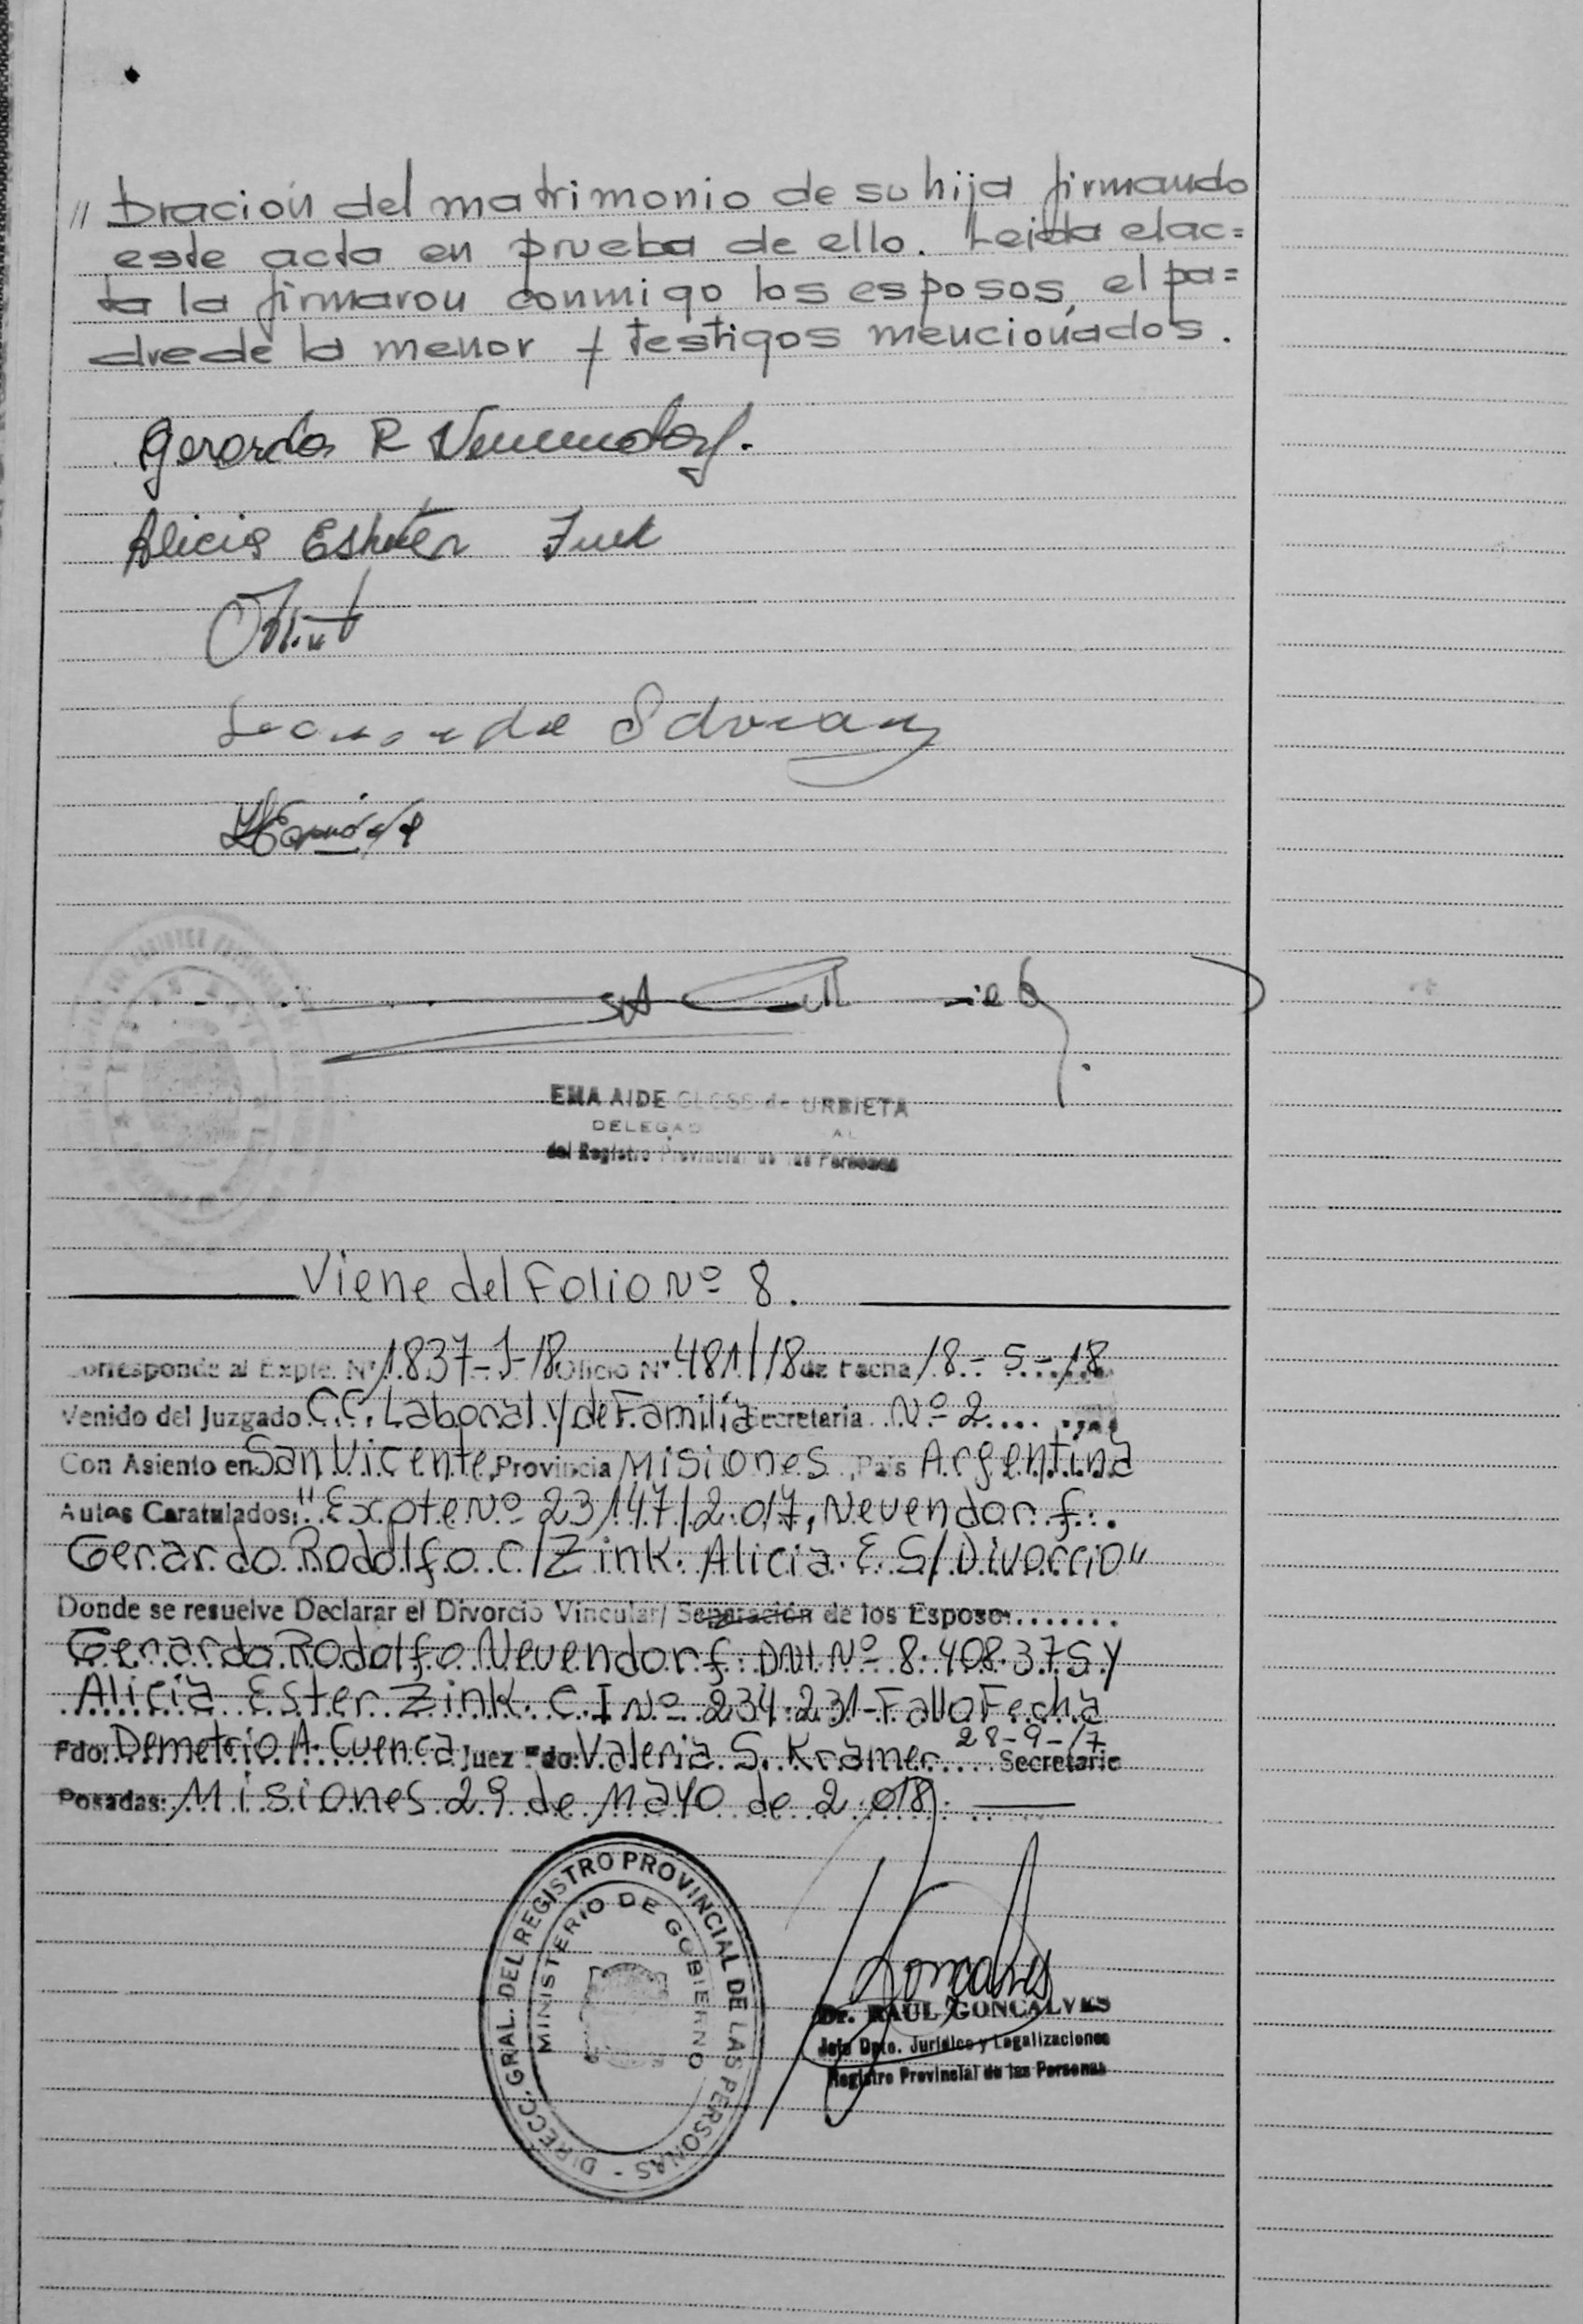 // bración del matrimonio de su hija firmando
este acta en prueba de ello. Leida el ac=
ta la firmaron conmigo los esposos, el pa=
dre de la menor y testigos mencionados.
Gerardo R Neuendorf.
Alicia Esther Zink
EMA AIDE CLOSS de URRIETA
DELEGAD AL
del Registro Provincial de las Personas
Viene del Folio Nº 8.
Corresponde al Expte. Nº 1837-J-18 Oficio Nº 481/18 de Fecha 18-5-18
Venido del Juzgado C.C. Laboral y de Familia Secretaria Nº 2
Con Asiento en San Vicente, Provincia Misiones, País Argentina
Autos Caratulados: "Expte Nº 23147/2.017, Neuendorf.
Gerardo Rodolfo C/ Zink. Alicia. E. S/ Divorcio"
Donde se resuelve Declarar el Divorcio Vincular/ Separación de los Esposos:
Gerardo Rodolfo Neuendorf. DNI. Nº 8.408.375 y
Alicia Ester Zink. C.I Nº 234.231-Fallo Fecha
28-9-17
Fdo: Demetrio A. Cuenca Juez Fdo: Valeria S. Kramer Secretario
Posadas: Misiones 29 de Mayo de 2.018.
DIRECC. GRAL. DEL REGISTRO PROVINCIAL DE LAS PERSONAS -
MINISTERIO DE GOBIERNO
Dr. RAUL GONCALVES
Jefe Dpto. Jurídico y Legalizaciones
Registro Provincial de las Personas